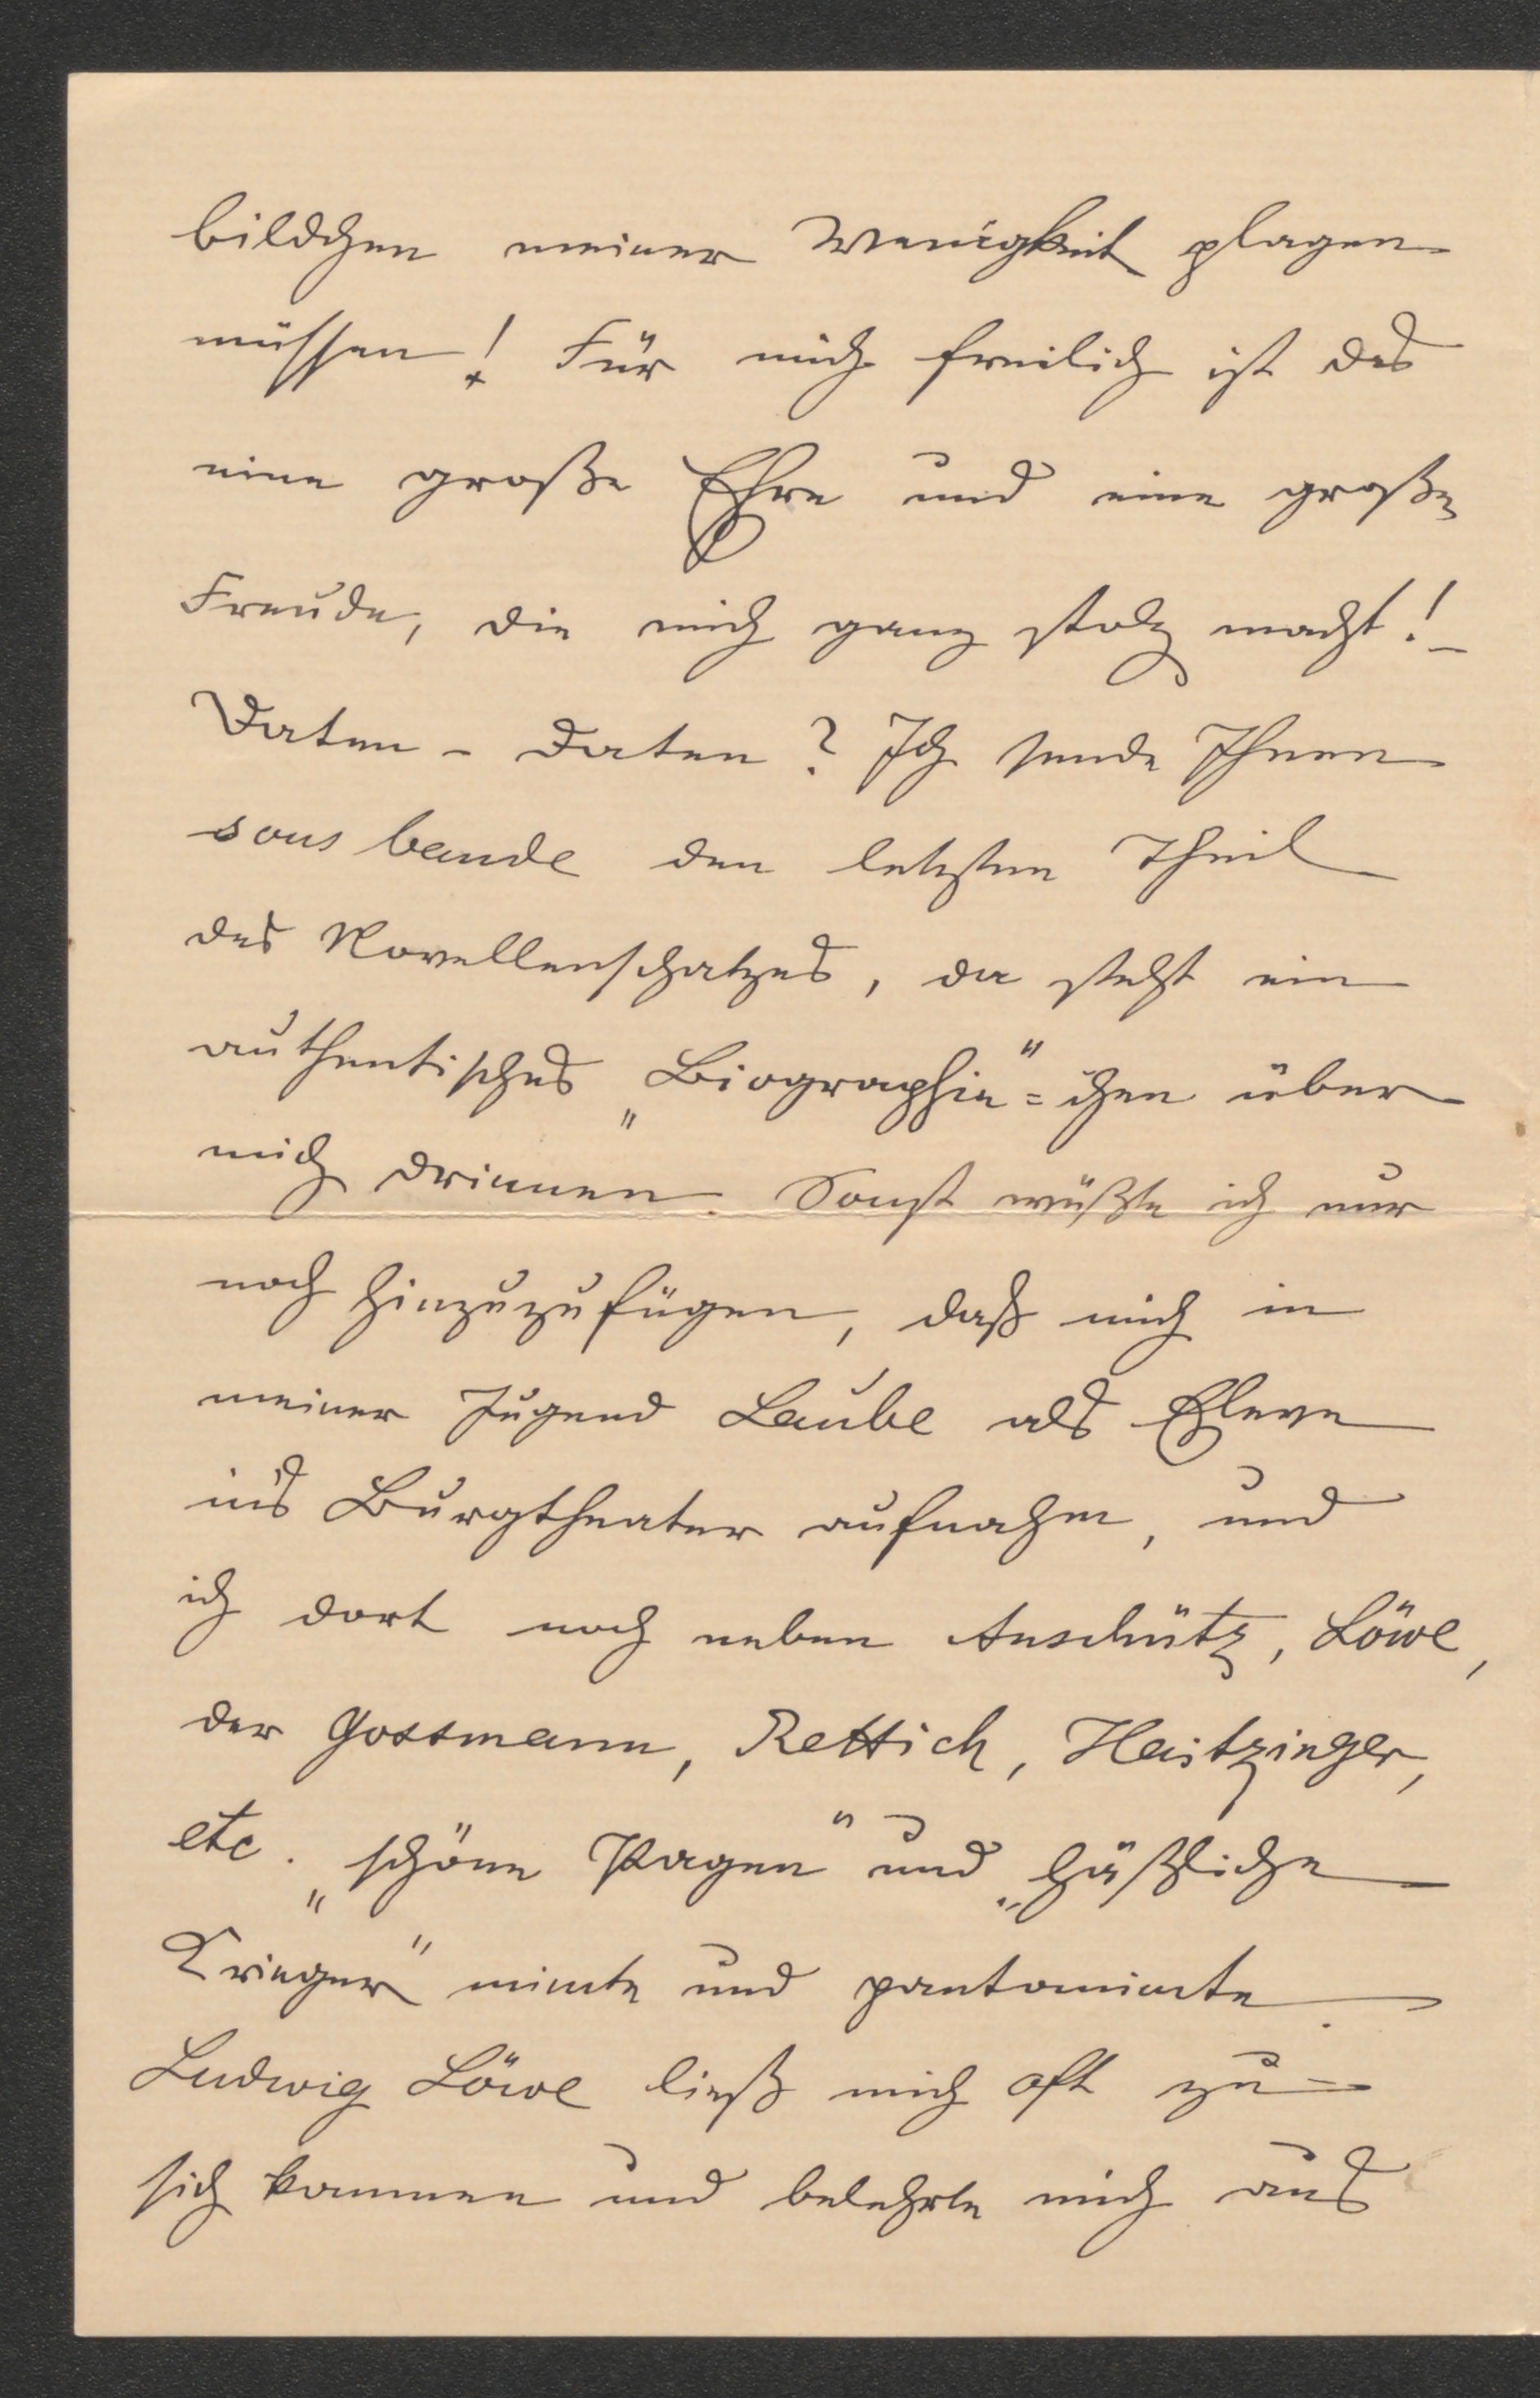 bildchen meiner Wenigkeit plagen
müssen! Für mich freilich ist das
eine große Ehre und eine große
Freude, die mich ganz stolz macht! –
Daten – Daten? Ich sende Ihnen
sous bande den letzten Theil
des Novellenschatzes, da steht ein
authentisches „Biographie"=chen über
mich drinnen. Sonst wüßte ich nur
noch hinzuzufügen, daß mich in
meiner Jugend Laube als Eleve
in's Burgtheater aufnahm, und
ich dort noch neben Anschütz, Löwe,
der Gossmann, Rettich, Haitzinger,
etc. „schöne Pagen" und „häßliche
Krieger" mimte und pantomimte.
Ludwig Löwe ließ mich oft zu
sich kommen und belehrte mich aus